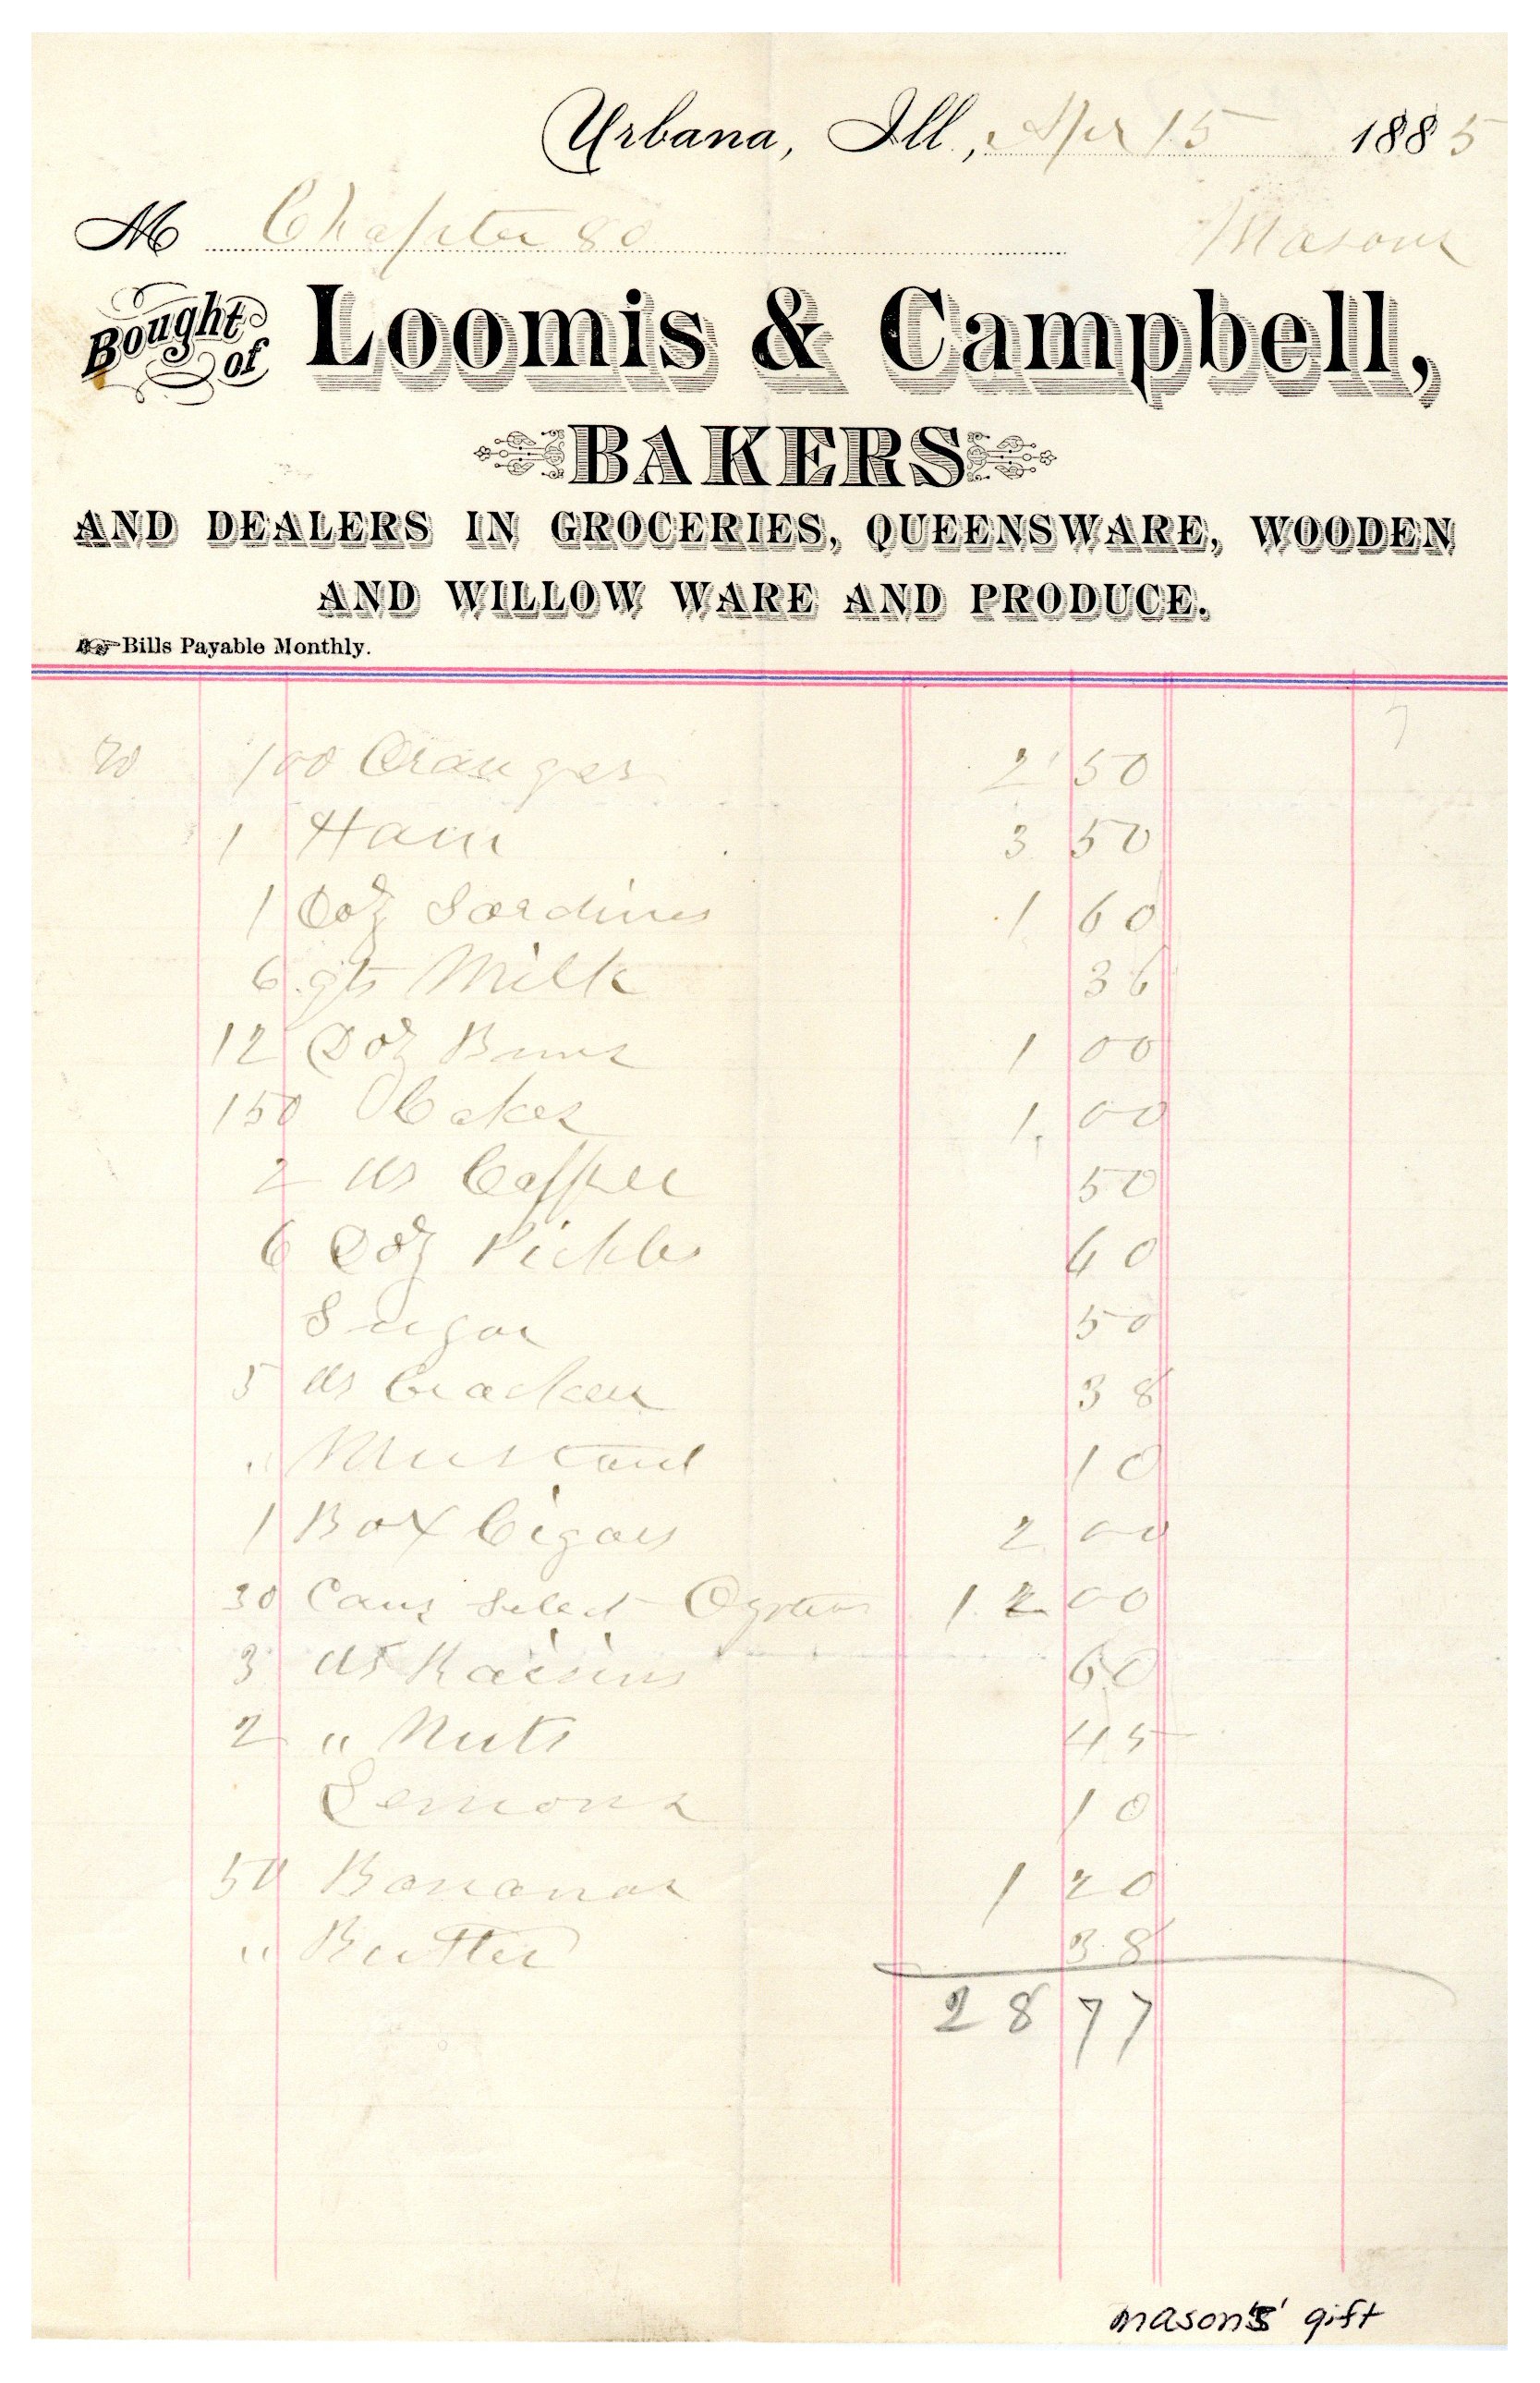 Urbana, Ill., Apr 15 1885
M Chapter 80 Masons
Bought of Loomis & Campbell,
BAKERS
AND DEALERS IN GROCERIES, QUEENSWARE, WOODEN
AND WILLOW WARE AND PRODUCE.
Bills Payable Monthly.
20 100 Oranges 2 50
1 Ham 3 50
1 Doz Sardines 1 60
6 qts Milk 36
12 Doz Buns 1 00
150 Cakes 1.00
2 lbs Coffee 50
6 Doz Pickles 60
Sugar 50
5 lbs Crackers 38
" Mustard 10
1 Box Cigars 2 00
30 Cans Select Oysters 12 00
3 lbs Raisins 60
2 " Nuts 45
Lemons 10
50 Bananas 1 20
" Butter 38
28 77
mason's' gift